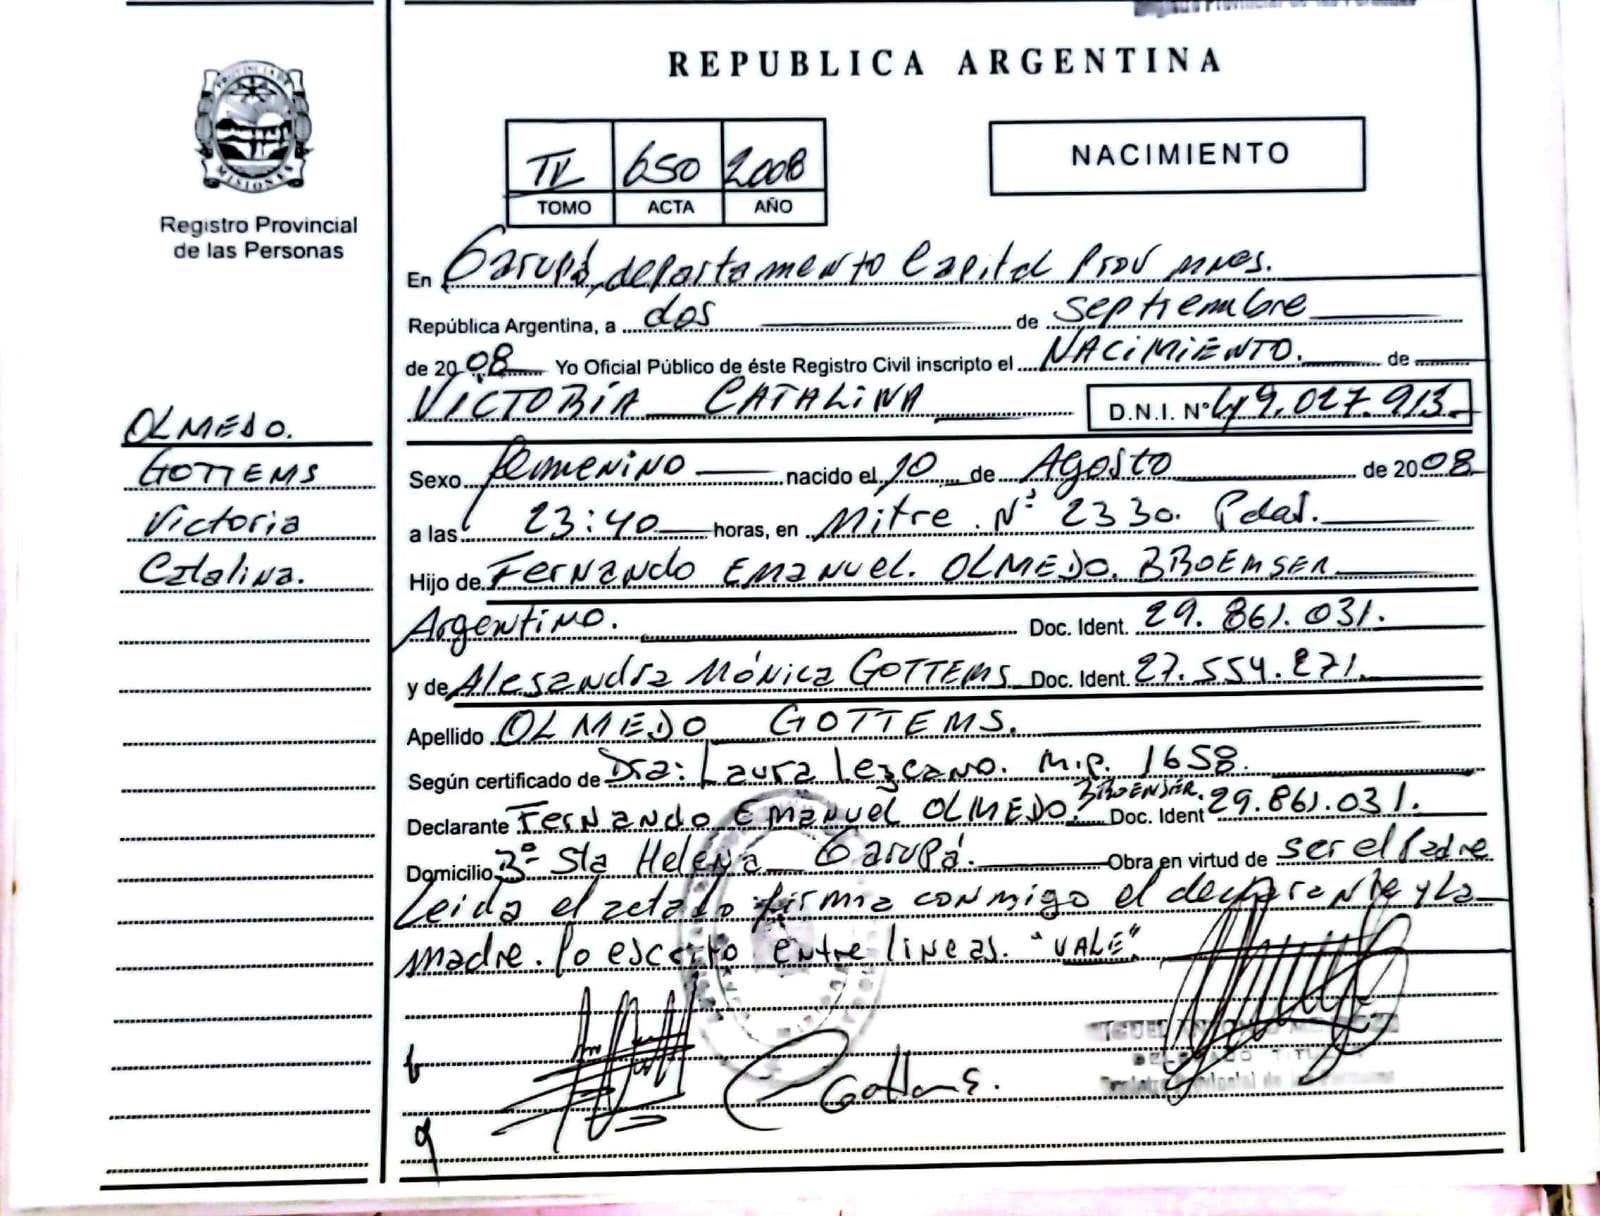 REPUBLICA ARGENTINA
PROVINCIA DE
MISIONES
Registro Provincial
de las Personas
TV 650 2008
TOMO ACTA AÑO
NACIMIENTO
En Garupá, departamento Capital Prov Mnes.
República Argentina, a dos de septiembre
de 2008 Yo Oficial Público de éste Registro Civil inscripto el NACIMIENTO. de
VICTORIA CATALINA D.N.I. N° 49.027.913
OLMEDO.
GOTTEMS
Victoria
Catalina.
Sexo femenino nacido el 10 de Agosto de 2008
a las 23:40 horas, en Mitre N° 2330. Pdas.
Hijo de Fernando Emanuel. OLMEDO. BROEMSER
Argentino. Doc. Ident. 29.861.031.
y de Alesandra Mónica GOTTEMS Doc. Ident. 27.554.271.
Apellido OLMEDO GOTTEMS.
Según certificado de Dra: Laura lezcano. M.p. 1658.
BROENSER.
Declarante Fernando Emanuel OLMEDO. Doc. Ident 29.861.031.
Domicilio Bº Sta Helena Garupá. Obra en virtud de ser el Padre
Leida el acta lo firma conmigo el declarante y la
madre. lo escrito entre lineas. "VALE"
Gottems.